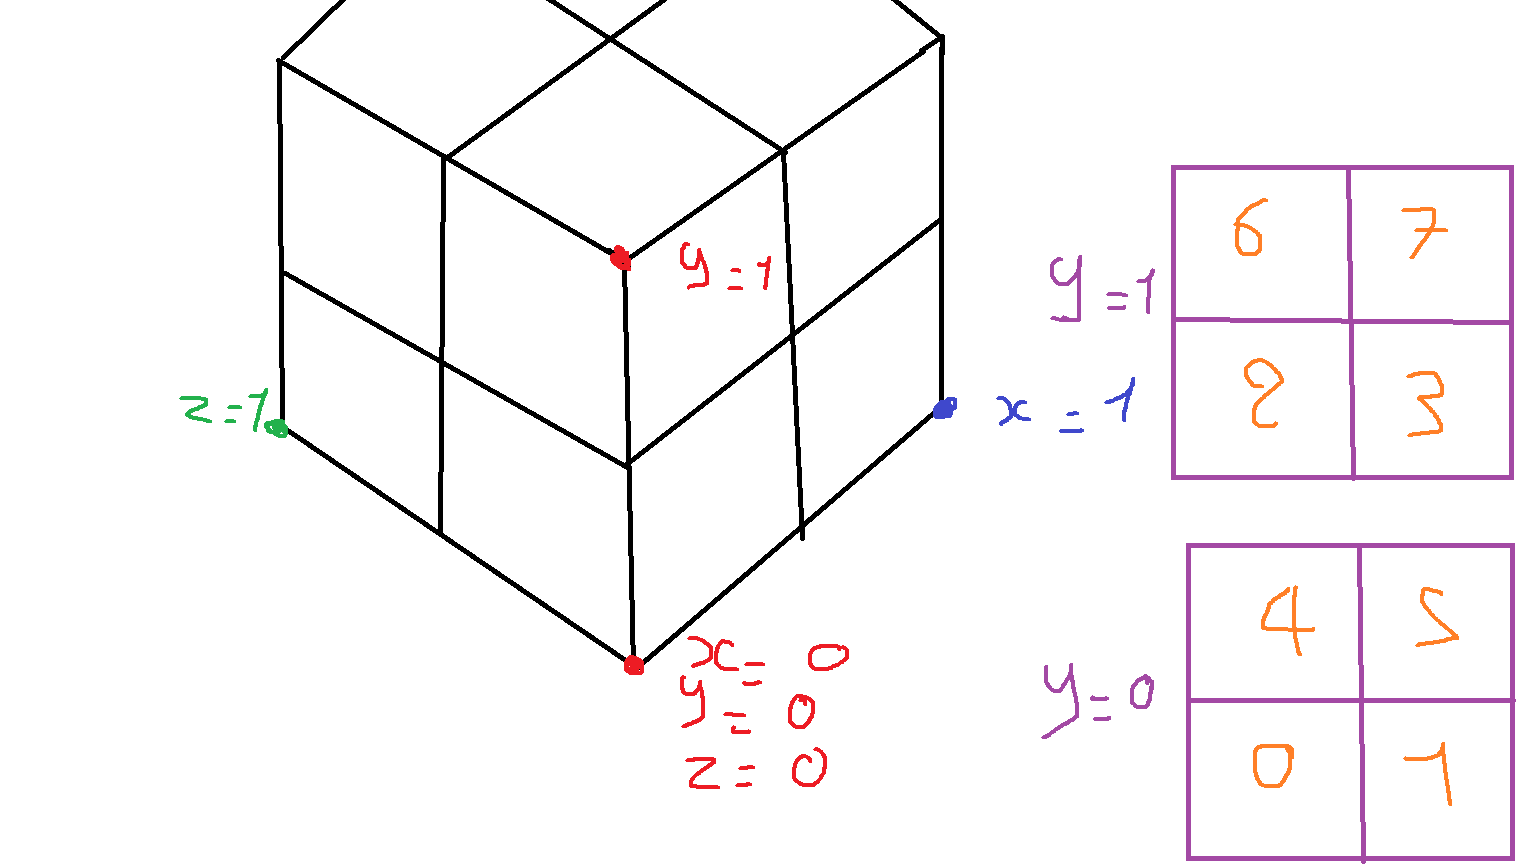 y=1
z=1
x=1
x=0
y=0
z=0
y=1
6 7
2 3
y=0
4 5
0 1